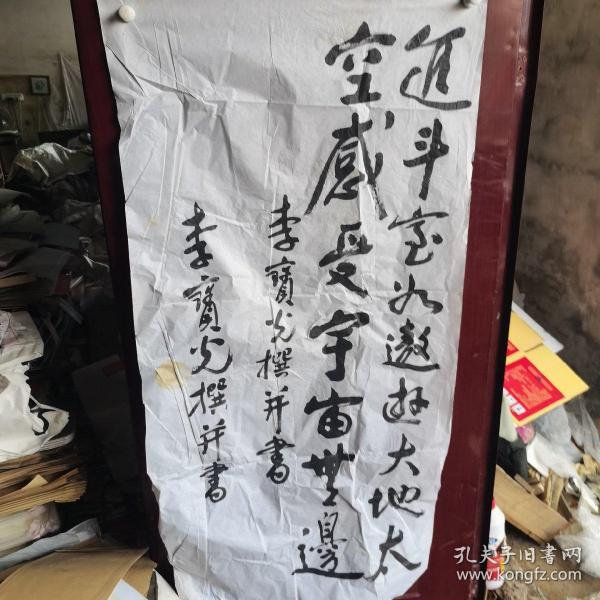 進斗室如遨遊大地太
空感受宇宙無邊
李寶光撰并書
李寶光撰并書
孔夫子旧書网
www.kongfz.com